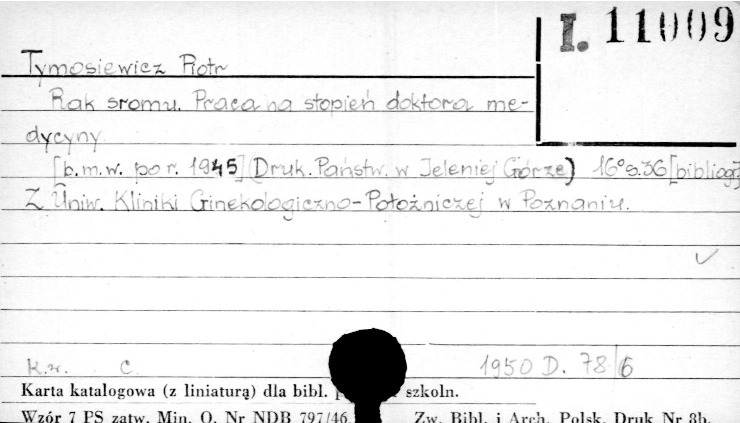 I. 11009
Tymosiewicz Piotr
Rak sromu. Praca na stopień doktora me-
dycyny.
[b.m.w. po r. 1945] (Druk. Państw. w Jeleniej Górze) 16° s.36 [bibliogr.]
Z Uniw. Kliniki Ginekologiczno-Położniczej w Poznaniu.
k.w. C. 1950 D. 78/6
Karta katalogowa (z liniaturą) dla bibl. szkoln.
Wzór 7 PS zatw. Min. O. Nr NDB 797/46 Zw. Bibl. i Arch. Polsk. Druk Nr 8b.